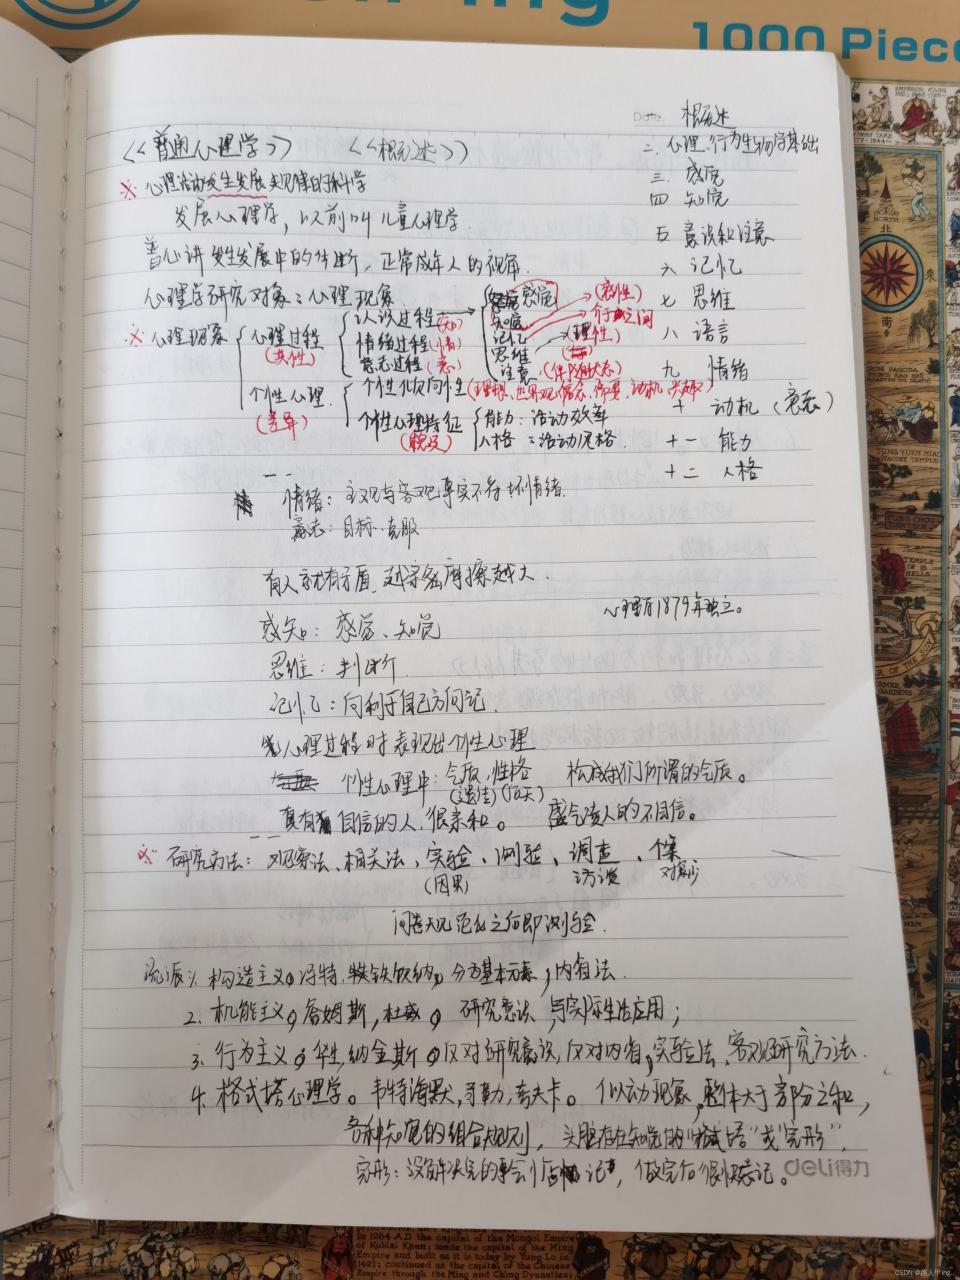 1000 Piece
Date.
概述
《普通心理学》 《概述》
二、心理、行为生物学基础
三 感觉
四 知觉
五 意识和注意
六 记忆
七 思维
八 语言
九 情绪
十 动机（意志）
十一 能力
十二 人格
※ 心理活动发生发展 规律的科学
发展心理学，以前叫儿童心理学.
普心讲发生发展中的 ，正常成年人的视角.
心理学研究对象：心理现象
※ 心理现象
心理过程
(共性)
认识过程(知)
情绪过程(情)
意志过程(意)
感觉
知觉
记忆
思维
注意
(感性)
(理性)
(伴随状态)
个性心理
(差异)
个性倾向性(理想、世界观、信念、需要、动机、兴趣)
个性心理特征
能力：活动效率
人格：活动风格.
情绪：主观与客观事实不符 坏情绪.
意志：目标-克服
有人就有矛盾，越亲密摩擦越大.
心理学1879年独立。
感知：感觉、知觉
思维：判断.
记忆：向利于自己方向记.
心理过程时表现出个性心理
个性心理中：气质、性格 构成我们所谓的气质。
(遗传)(后天)
真有 自信的人，很亲和。 盛气凌人的不自信。
※ 研究方法：观察法、相关法、实验、测验、调查、个案
(因果) 访谈 对象少
问卷大规范化之后即测验.
流派：1. 构造主义，冯特、铁钦纳，分为基本元素，内省法.
2. 机能主义，詹姆斯，杜威， 研究意识，与实际生活应用；
3. 行为主义，华生，纳金斯，反对研究意识，反对内省，实验法、客观研究方法.
4. 格式塔心理学。韦特海默，苛勒，考夫卡。 似动现象，整体大于部分之和，
各种知觉的组合规则， 头脑存在知觉的"格式塔"或"完形".
完形：没解决完的事会 记，做完后很快忘记。
deli得力
北
南
NORTH
PAGODA
TUNG YUEH MIAO
TAOIST TEMPLE
TEMPLE OF
BELLS
In 1264 A.D. the capital of the Mongol Empire
of Kublai Khan; made the capital of the Ming
Empire and built as it is today by Yung Lo in
1421; continued as the capital of the Chinese
Empire through the Ming and Ching Dynasties;
CSDN @路人甲ing..